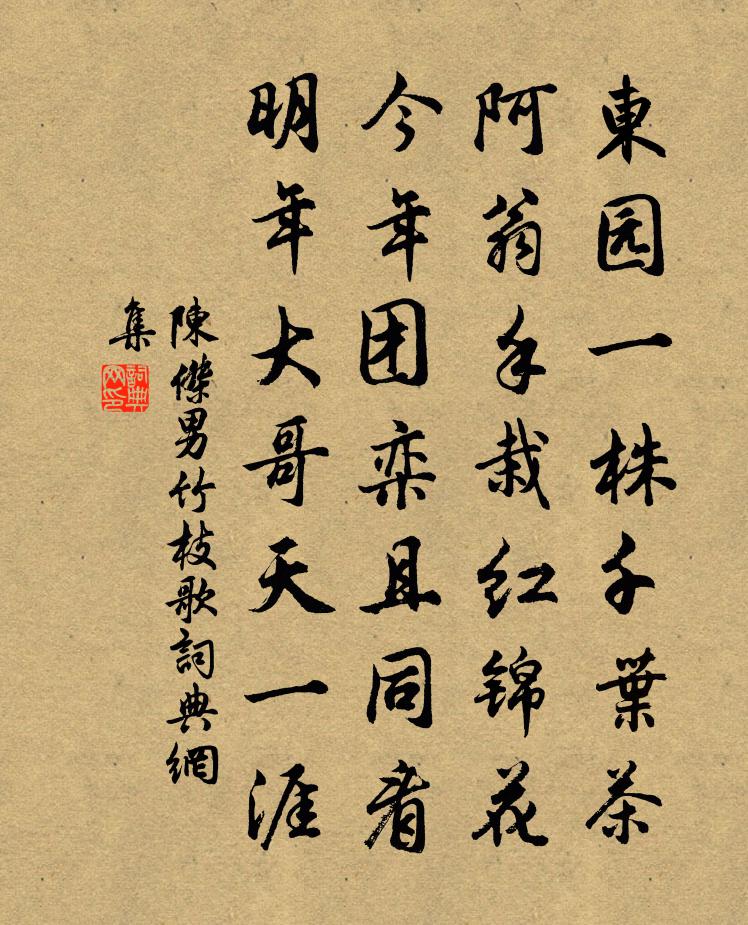 東园一株千葉茶
阿翁手栽红锦花
今年团奕且同看
明年大哥天一涯
陳傑男竹枝歌詞典網
集
詞典
网印